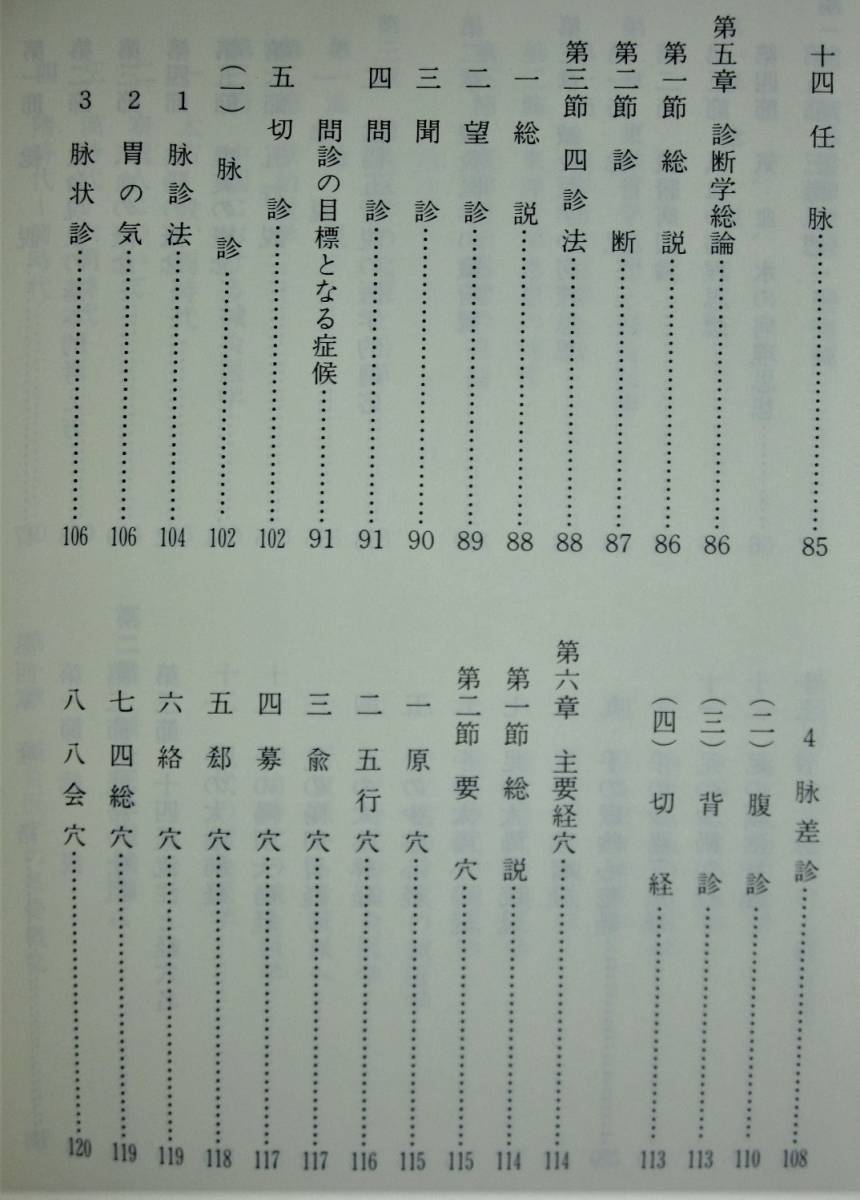 十四 任脉……85
第五章 診断学総論……86
第一節 総説……86
第二節 診断……87
第三節 四診法……88
一 総説……88
二 望診……89
三 聞診……90
四 問診……91
問診の目標となる症候……91
五 切診……102
(一) 脉診……102
1 脉診法……104
2 胃の気……106
3 脉状診……106
4 脉差診……108
(二) 腹診……110
(三) 背診……113
(四) 切経……113
第六章 主要経穴……114
第一節 総説……114
第二節 要穴……115
一 原穴……115
二 五行穴……116
三 兪穴……117
四 募穴……117
五 郄穴……118
六 絡穴……119
七 四総穴……119
八 八会穴……120